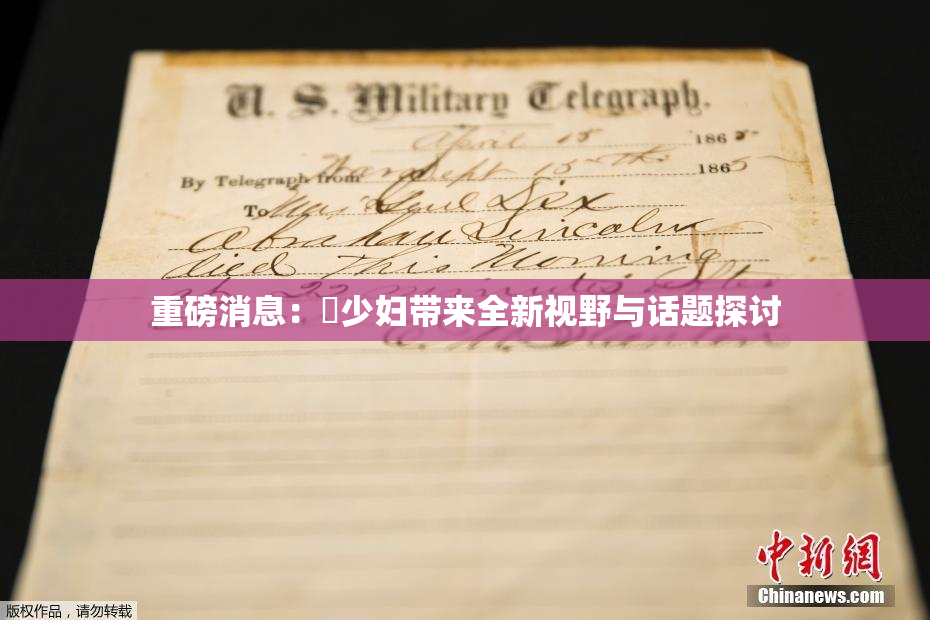 U. S. Military Telegraph.
April 15 1865
By Telegraph from War Dept 15th 1865
To Maj Genl Dix
Abraham Lincoln
died This Morning
at 22 minutes after
重磅消息：少妇带来全新视野与话题探讨
E. M. Stanton
中新网
Chinanews.com
版权作品，请勿转载